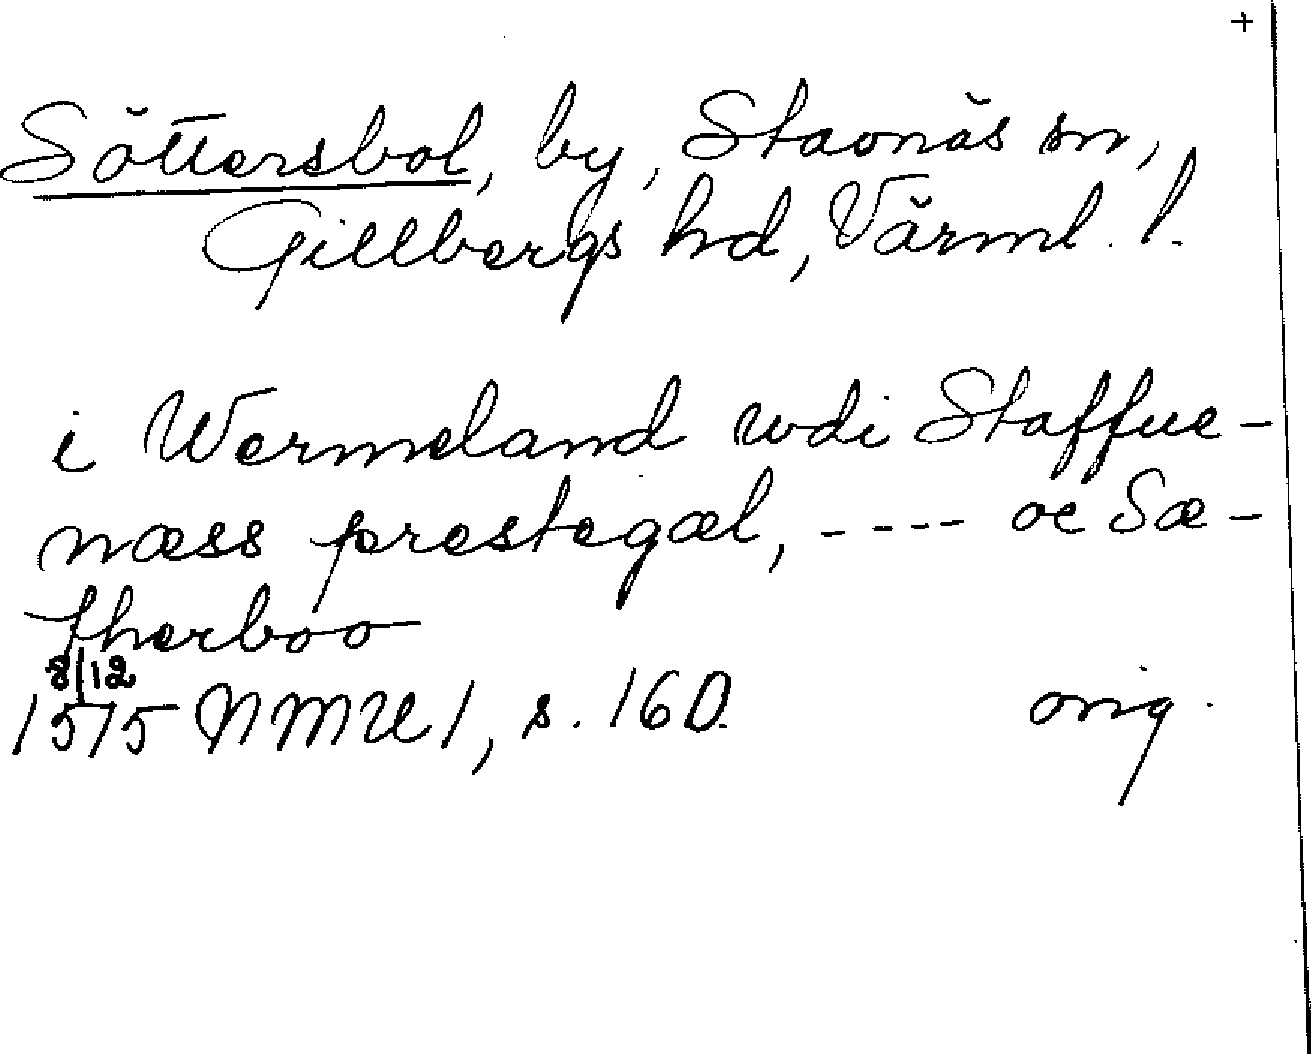 +
Sättersbol, by, Stavnäs sn,
Gillbergs hd, Värml. l.
i Wermeland wdi Staffue-
næss prestegæl, ---- oc Sæ-
therboo
8/12
1515 NMU 1, s. 160. orig.